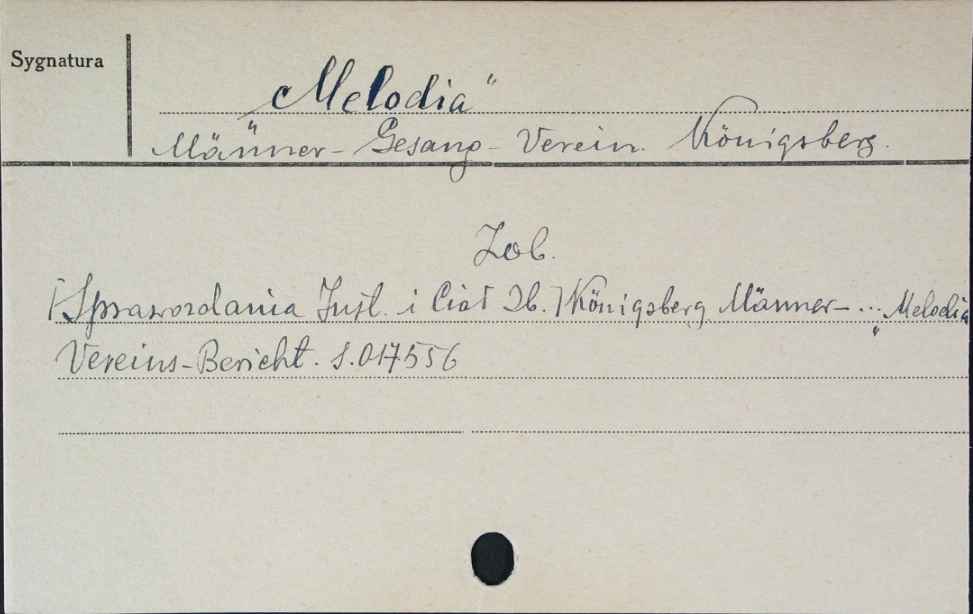 Sygnatura
"Melodia"
Männer-Gesang-Verein. Königsberg.
Zob.
[Sprawozdania Inst. i Ciał Zb.] Königsberg Männer-... "Melodia
Vereins-Bericht. S.017556